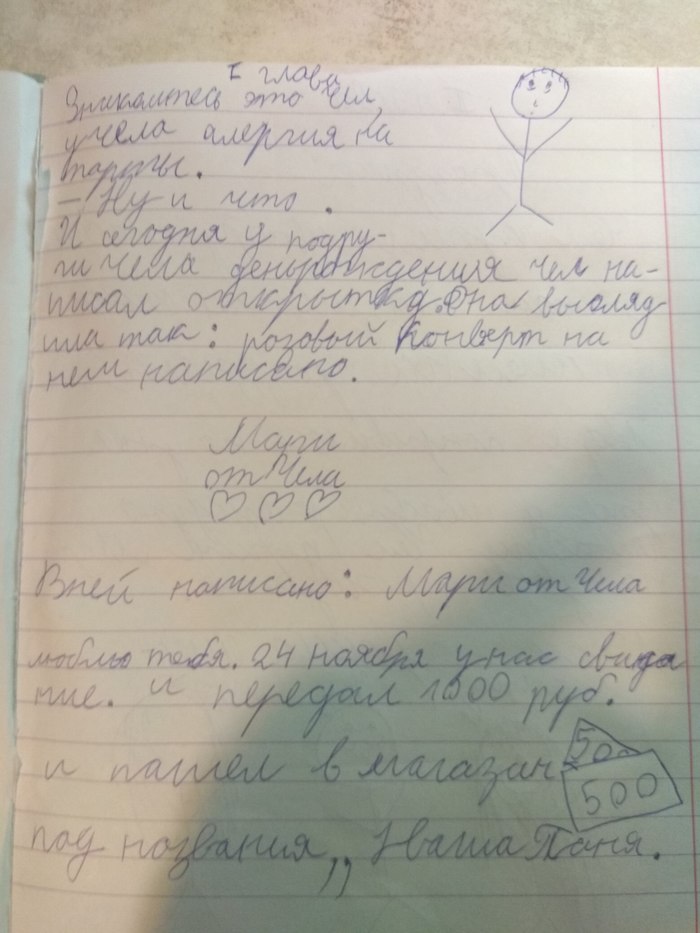 I глава
Знакомтесь это Чел,
у чела алергия на
торты.
- Ну и что.
И сегодня у подру-
ги Чела деньрождения чел на-
писал открытка. Она выгляд
ила так: розовый конверт на
нем написано.
Мари
от Чела
Вней написано: Мари от Чела
люблю тебя. 24 ноября у нас свида
ние. и передал 1000 руб.
и пашел в магазин
500
500
под нозвания,, Наша Таня.